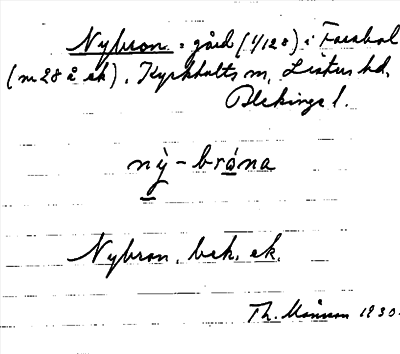 Nybron : gård (1/128) i Farabol
(m 28 å ek), Kyrkhults sn, Listers hd,
Blekinge l.
nỳ - bróna
Nybron, bek. ek.
Th. Månsson 1930.